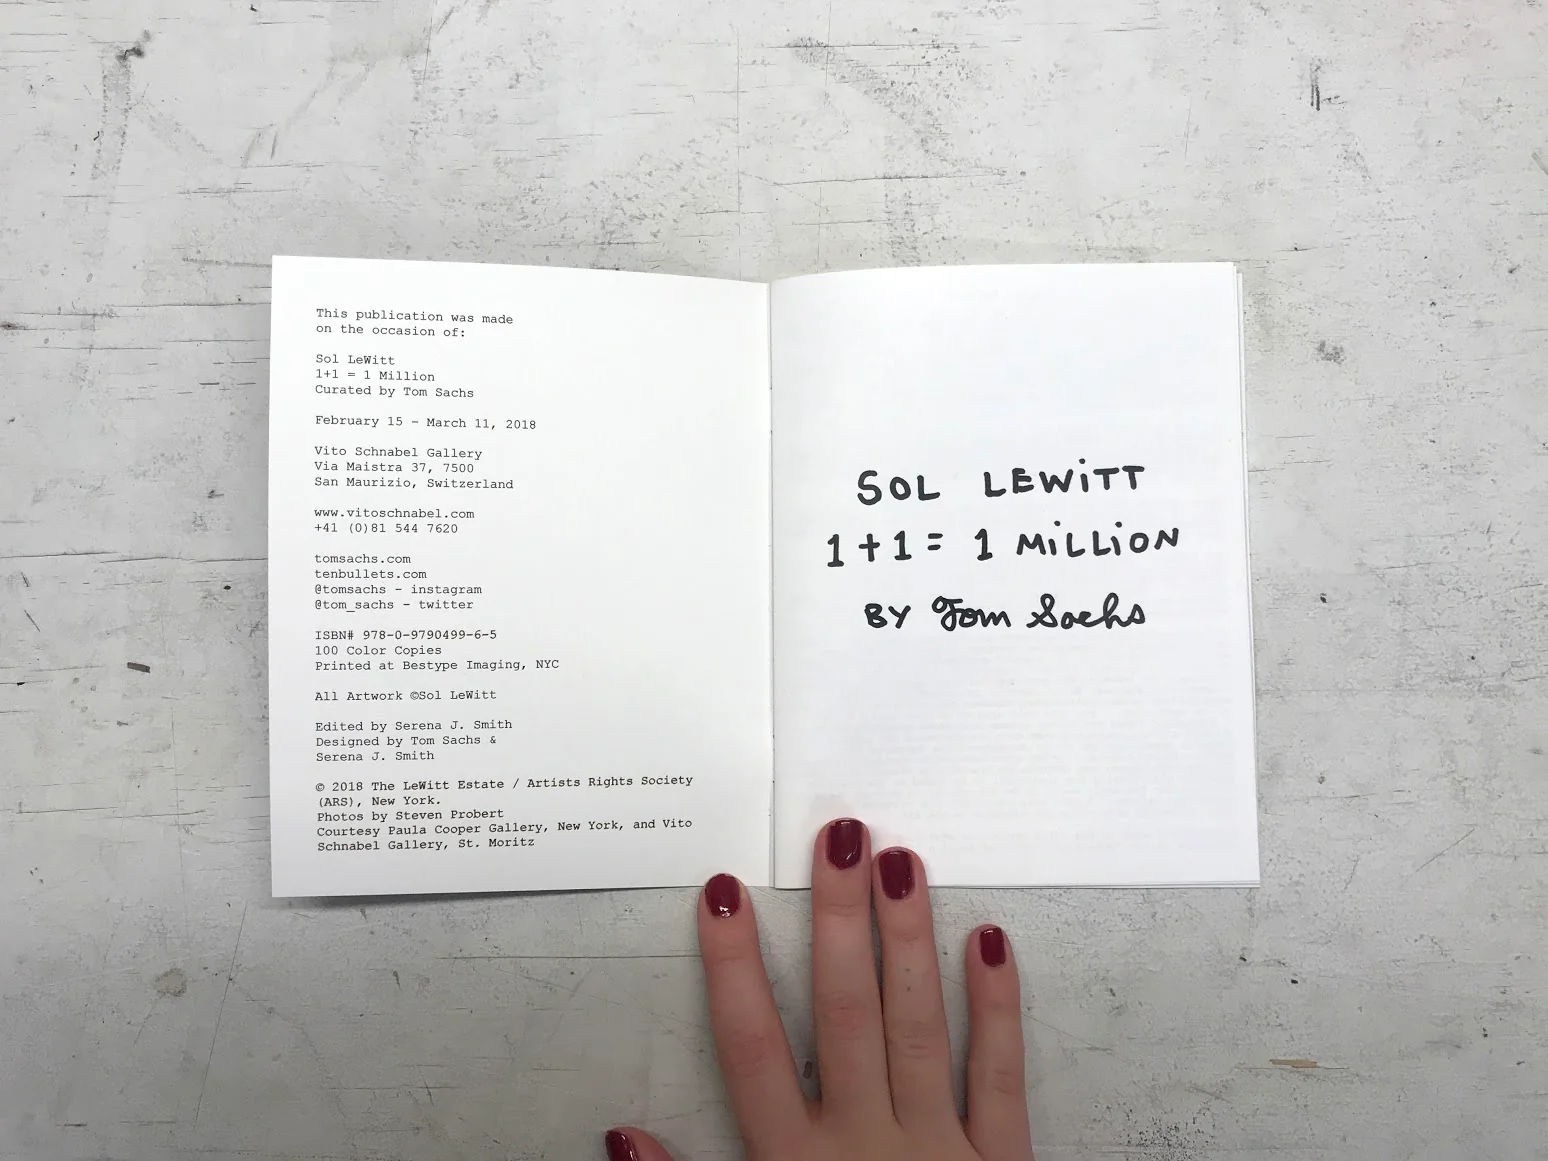 This publication was made
on the occasion of:
Sol LeWitt
1+1 = 1 Million
Curated by Tom Sachs
February 15 - March 11, 2018
Vito Schnabel Gallery
Via Maistra 37, 7500
San Maurizio, Switzerland
www.vitoschnabel.com
+41 (0)81 544 7620
tomsachs.com
tenbullets.com
@tomsachs - instagram
@tom_sachs - twitter
ISBN# 978-0-9790499-6-5
100 Color Copies
Printed at Bestype Imaging, NYC
All Artwork ©Sol LeWitt
Edited by Serena J. Smith
Designed by Tom Sachs &
Serena J. Smith
© 2018 The LeWitt Estate / Artists Rights Society
(ARS), New York.
Photos by Steven Probert
Courtesy Paula Cooper Gallery, New York, and Vito
Schnabel Gallery, St. Moritz
SOL LEWiTT
1+1= 1 MiLLiON
BY Tom Sachs